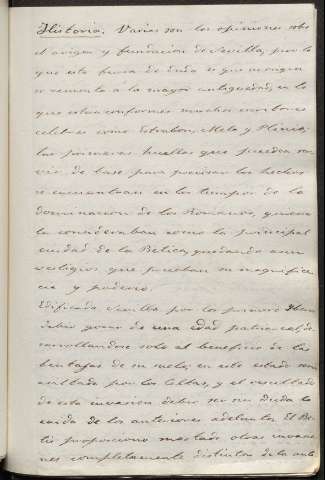 Historia. Varias son las opiniones sobre
el origen y fundacion de Sevilla, por lo
que esta fuera de duda es que su origen
se remonta a la mayor antiguedad, en lo
que estan conformes muchos escritores
celebres como Estrabon, Mela y Plinio;
las primeras huellas que pueden ser
vir de base para precisar los hechos
se encuentran en los tiempos de la
dominacion de los Romanos, quienes
la consideraban como la principal
ciudad de la Betica, quedando aun
vestigios que prueban su magnificen
cia y poderio.
Edificada Sevilla por los primeros
debio gozar de una edad patriarcal de
sarrollandose solo al beneficio de las
ventajas de su suelo; en este estado
por los Celtas, y el resultado
de esta invasion debio ser sin duda la
caida de los anteriores adelantos. El Be
tis proporciono mas tarde otras invasio
nes completamente distintas de la ante